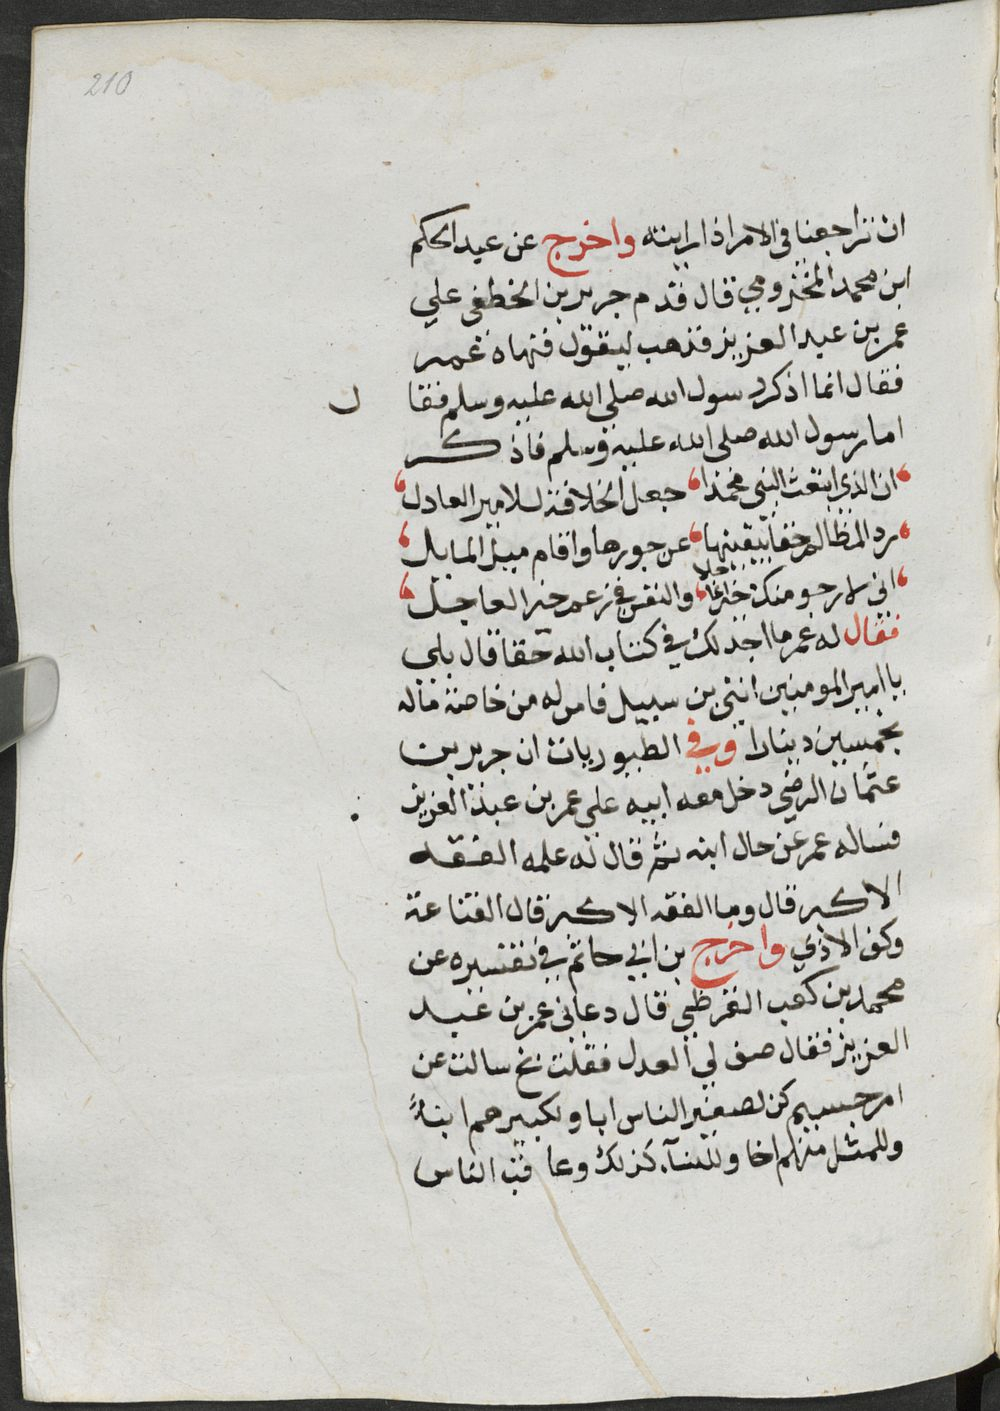 210
ان تراجعنا في الامر اذا رايته واخرج عن عبد الحكم
ابن محمد المخزومي قال قدم جرير بن الخطفى علي
عمر بن عبد العزيز فذهب ليقول فنهاه عمر
فقال انما اذكر رسول الله صلى الله عليه وسلم فقال
اما رسول الله صلى الله عليه وسلم فاذكر
ان الذي ابتعث النبي محمدا جعل الخلافة للامير العادل
رد المظالم حقا بيقينها عن جورها واقام ميل المايل
اني لارجو منك خيرا عاجلا والنفس في زعم خير العاجل
فقال له عمر ما اجد لك في كتاب الله حقا قال بلي
يا امير المومنين انني بن سبيل فامر له من خاصة ماله
بخمسين دينارا وفي الطيوريات ان جرير بن
عثمان الرضي دخل معه ابيه علي عمر بن عبد العزيز
فساله عمر عن حال ابنه ثم قال له علمه الفقه
الاكبر قال وما الفقه الاكبر قال القناعة
وكف الاذي واخرج بن ابي حاتم في تفسيره عن
محمد بن كعب القرظي قال دعاني عمر بن عبد
العزيز فقال صف لي العدل فقلت بخ سالت عن
امر جسيم كن لصغير الناس ابا ولكبيرهم ابنا
وللمثل منهم اخا وللنسآء كذلك وعاقب الناس